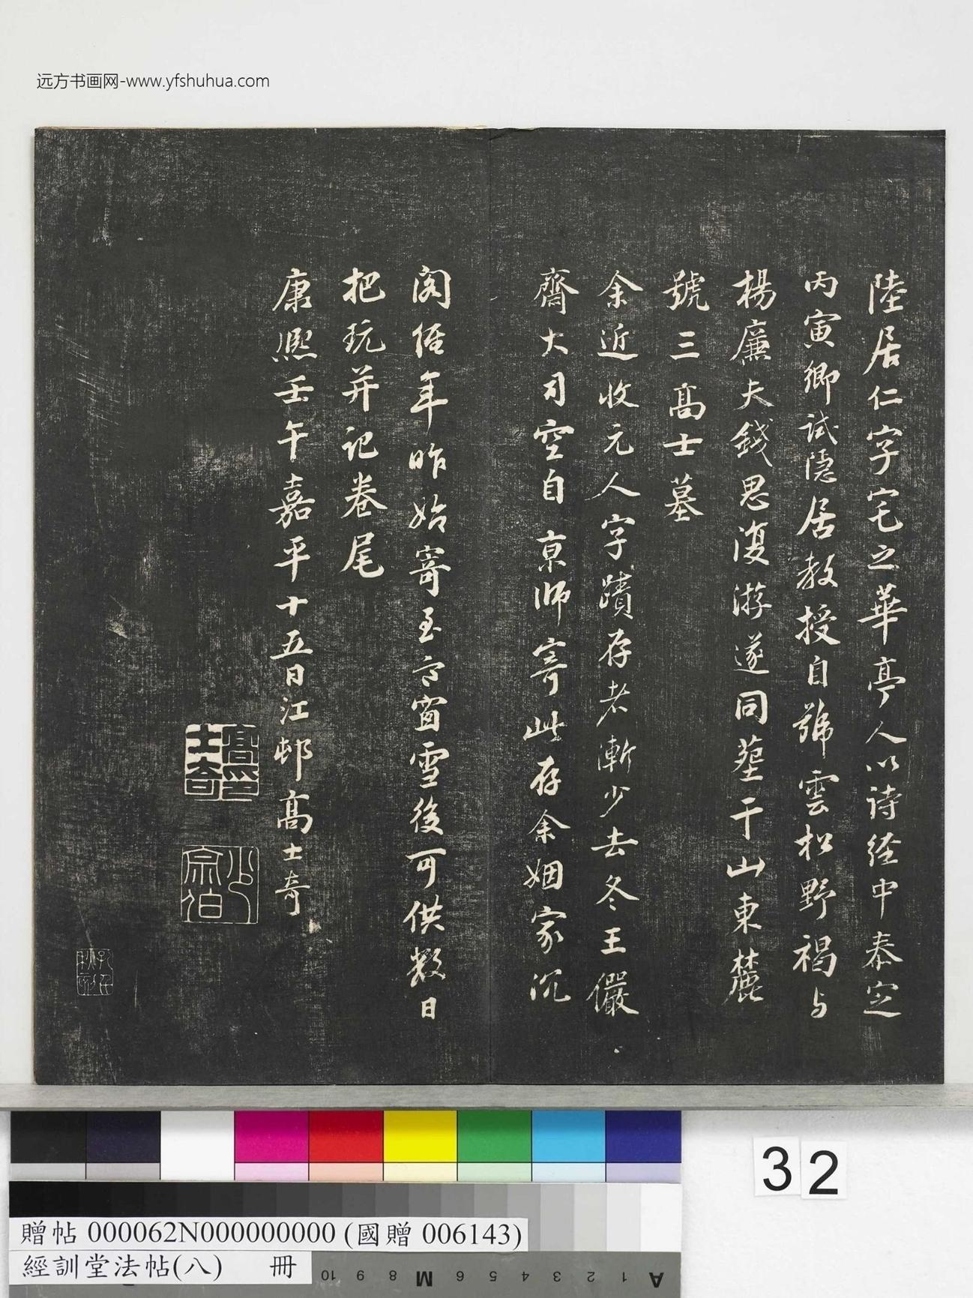 远方书画网-www.yfshuhua.com
陸居仁字宅之華亭人以詩経中泰定
丙寅鄉試隱居教授自號雲松野褐与
楊廉夫錢思復游遂同葬干山東麓
號三髙士墓
余近收元人字蹟存者漸少去冬王儼
齋大司空自京師寄此存余姻家沉
閣經年昨始寄至守窗雪後可供數日
把玩并記卷尾
康熙壬午嘉平十五日江邨髙士奇
高士奇印
32
贈帖 000062N000000000 (國贈 006143)
經訓堂法帖(八) 冊
10 9 8 M 6 5 4 3 2 1 A